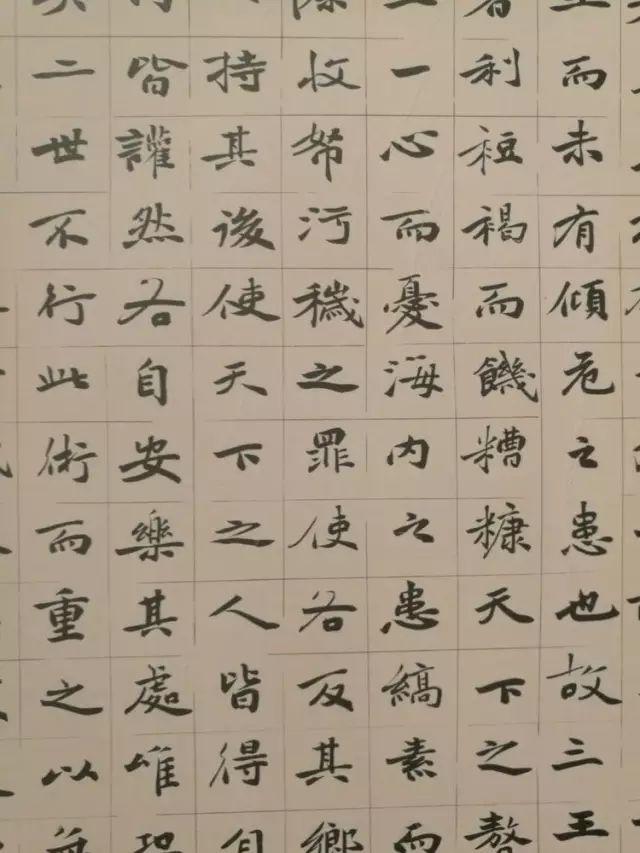 而未有傾危之患也故三王
者利裋褐而饑糟糠天下之嗸
一心而憂海內之患縞素而
除收帑污穢之罪使各反其鄉
持其後使天下之人皆得自
皆讙然各自安樂其處唯恐
二世不行此術而重之以無